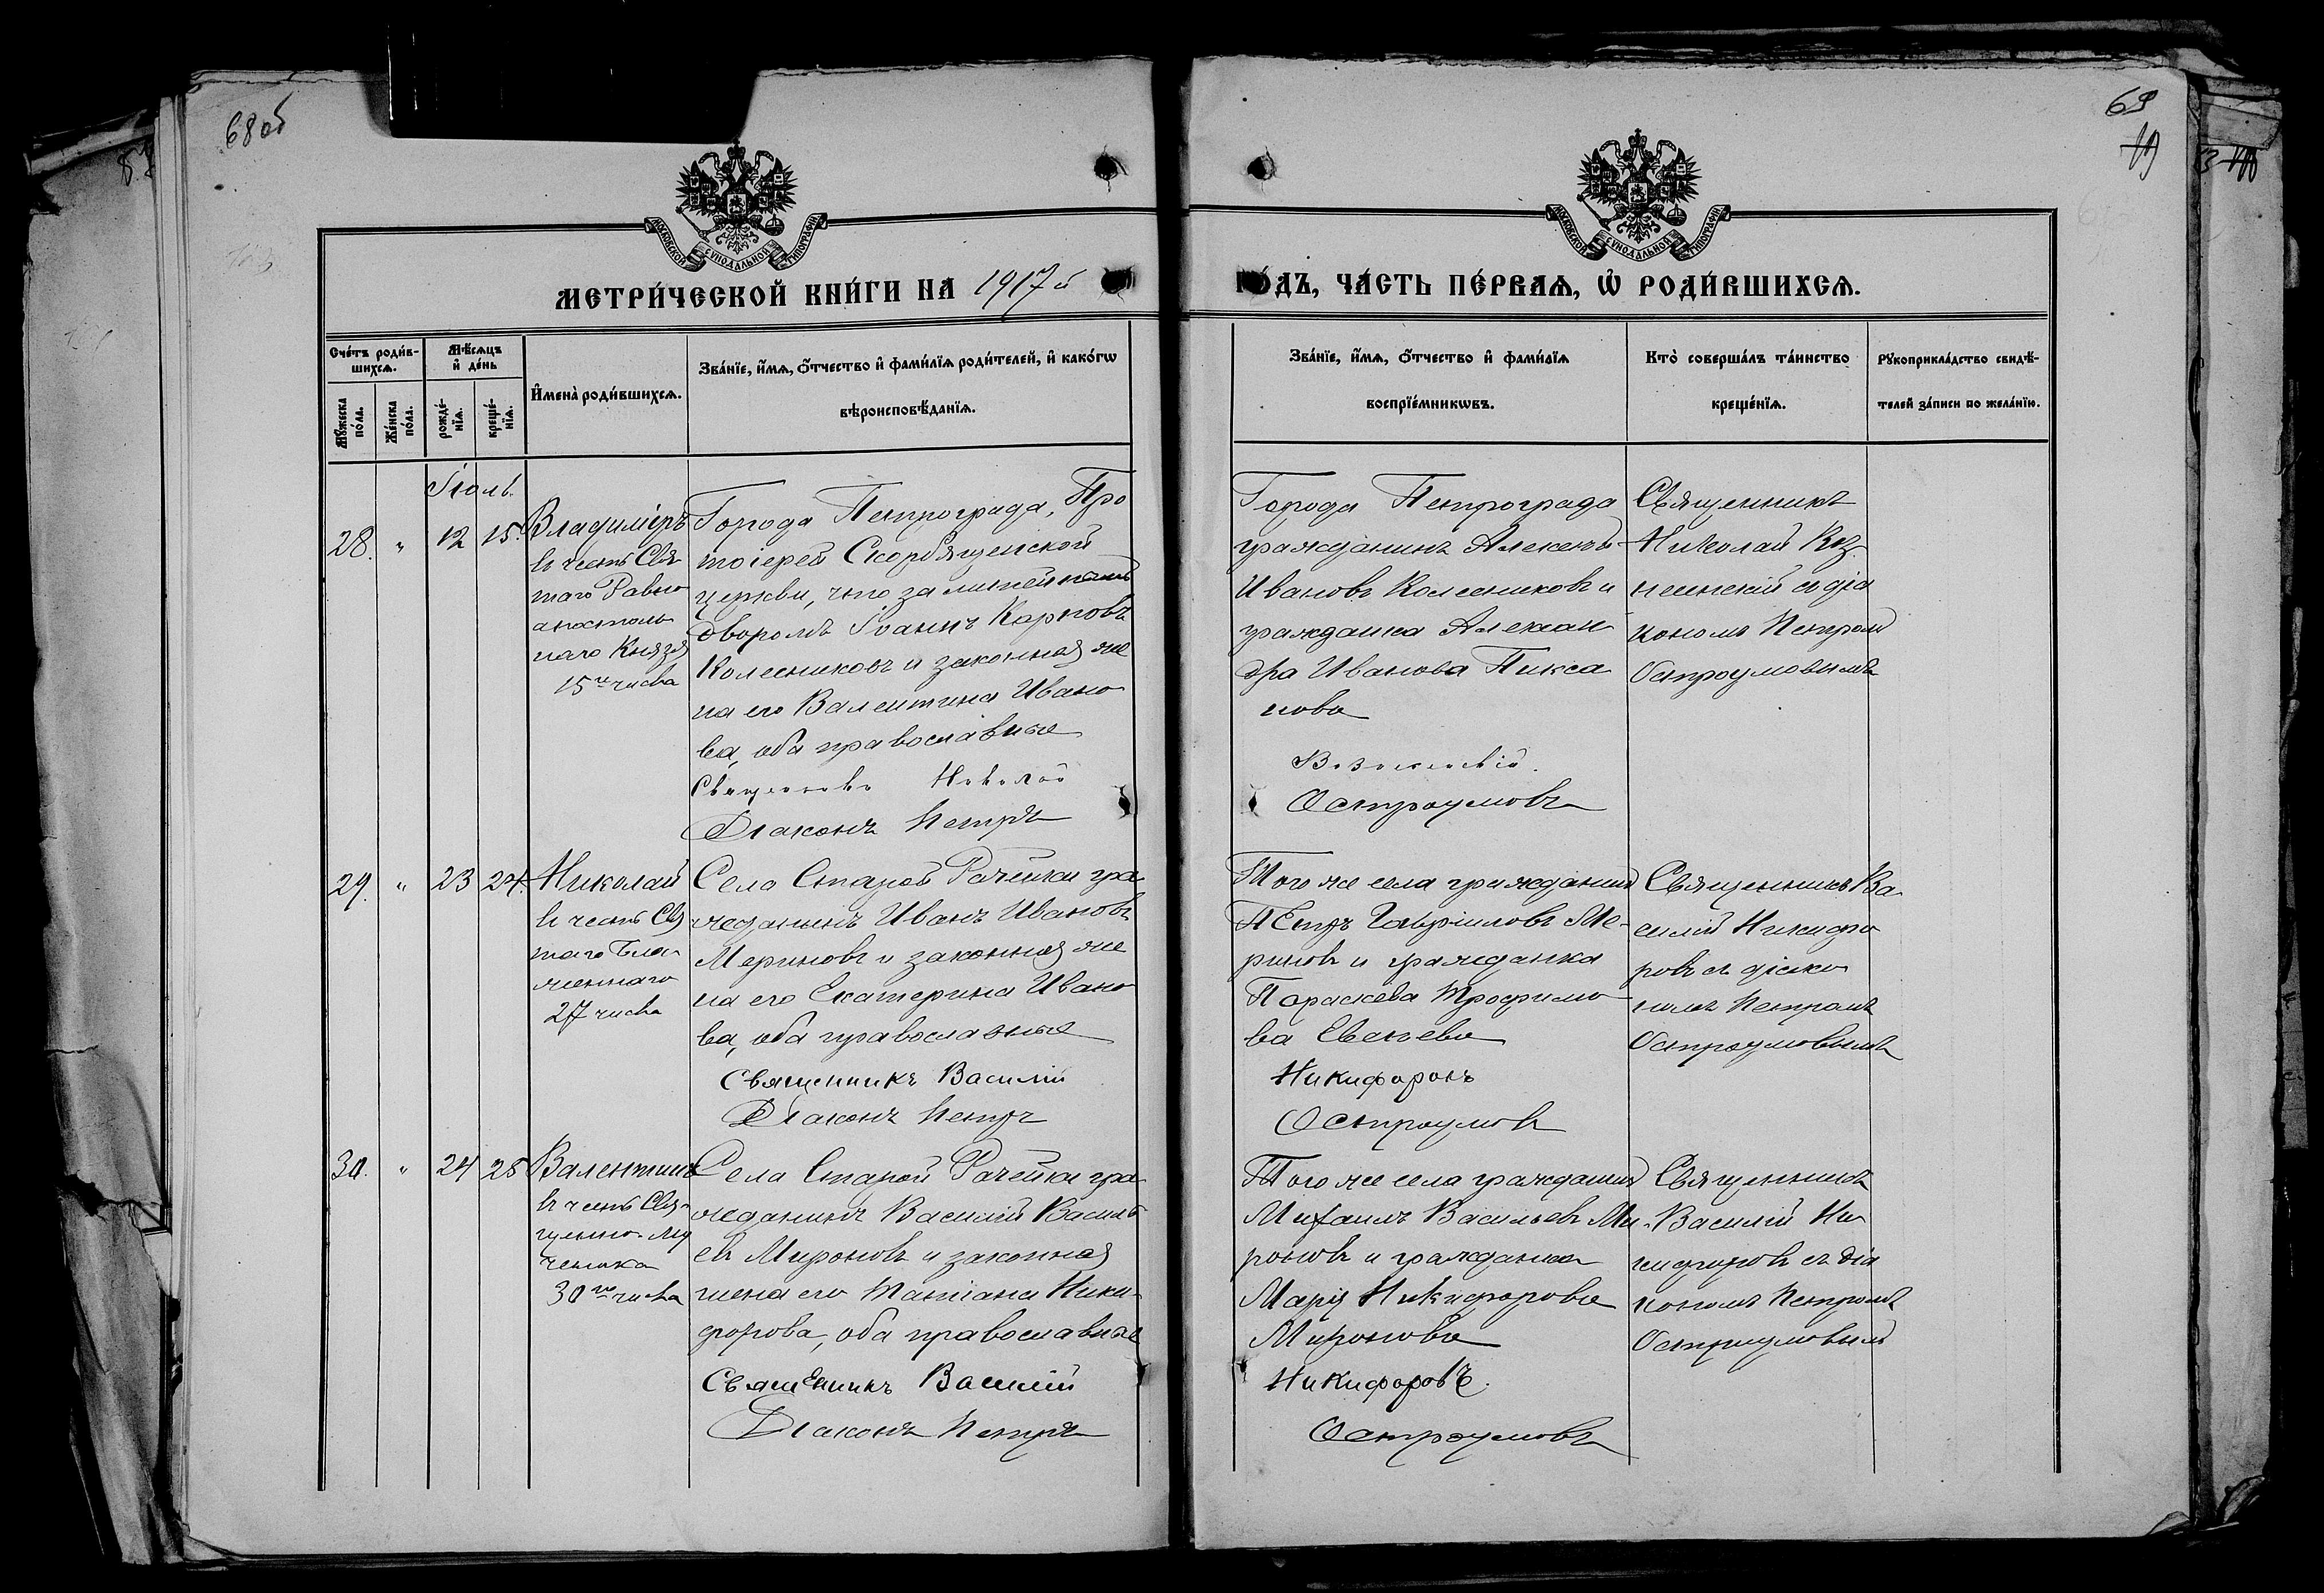 68 об
69
МОСКОВСКОЙ СУНОДАЛЬНОЙ ТИПОГРАФІИ
МОСКОВСКОЙ СУНОДАЛЬНОЙ ТИПОГРАФІИ
МЕТРИ́ЧЕСКОЙ КНИ́ГИ НА 1917й
ГО́ДЪ, ЧА́СТЬ ПЕ́РВАѦ, Ѡ҆ РОДИ́ВШИХСѦ.
Сче́тъ роди́в-
шихсѧ.
Мꙋ́жеска по́ла.
Же́нска по́ла.
Мѣ́сѧцъ и҆ де́нь
рожде́-нїѧ.
креще́-нїѧ.
И҆мена̀ роди́вшихсѧ.
Зва́нїе, и҆́мѧ, ѻ҆́тчество и҆ фами́лїѧ роди́телей, и҆ како́гѡ
вѣроисповѣ́данїѧ.
Зва́нїе, и҆́мѧ, ѻ҆́тчество и҆ фами́лїѧ
воспрїе́мникѡвъ.
Кто̀ соверша́лъ та́инство
креще́нїѧ.
Рꙋкоприкла́дство свидѣ́-
телей за́писи по жела́нїю.
Іюль.
28. „ 12 15.
Владиміръ
въ честь Свя
таго Равно
апостоль
наго Князя
15го числа
Города Петрограда, Про
тоіерей Скорбященской
церкви, что за литейнымъ
дворомъ Іоаннъ Карповъ
Колесниковъ и законная же
на его Валентина Ивано
ва, оба православные
Священникъ Николай
Діаконъ Петръ
Города Петрограда
гражданинъ Алексѣй
Ивановъ Колесниковъ и
гражданка Алексан
дра Иванова Пикса
нова
Вознесенскій.
Остроумовъ
Священникъ
Николай Воз
несенскій съ діа
кономъ Петромъ
Остроумовымъ
29. „ 23 24.
Николай
въ честь Свя
таго Бла
женнаго
27 числа
Села Старой Рачейки гра
жданинъ Иванъ Ивановъ
Мериновъ и законная же
на его Екатерина Ивано
ва, оба православные
Священникъ Василій
Діаконъ Петръ
Того же села гражданинъ
Петръ Гавріиловъ Ме-
риновъ и гражданка
Параскева Трофимо
ва
Никифоровъ
Остроумовъ
Священникъ Ва
силій Никифо
ровъ съ діако
номъ Петромъ
Остроумовымъ
30. „ 24 25
Валентинъ
въ честь Свя-
щенно-му
ченика
30го числа
Села Старой Рачейки гра
жданинъ Василій Василь
евъ Мироновъ и законная
жена его Татіана Ники-
форова, оба православные
Священникъ Василій
Діаконъ Петръ
Того же села гражданинъ
Михаилъ Васильевъ Ми-
роновъ и гражданка
Марія Никифорова
Миронова
Никифоровъ.
Остроумовъ
Священникъ
Василій Ни
кифоровъ съ діа
кономъ Петромъ
Остроумовымъ